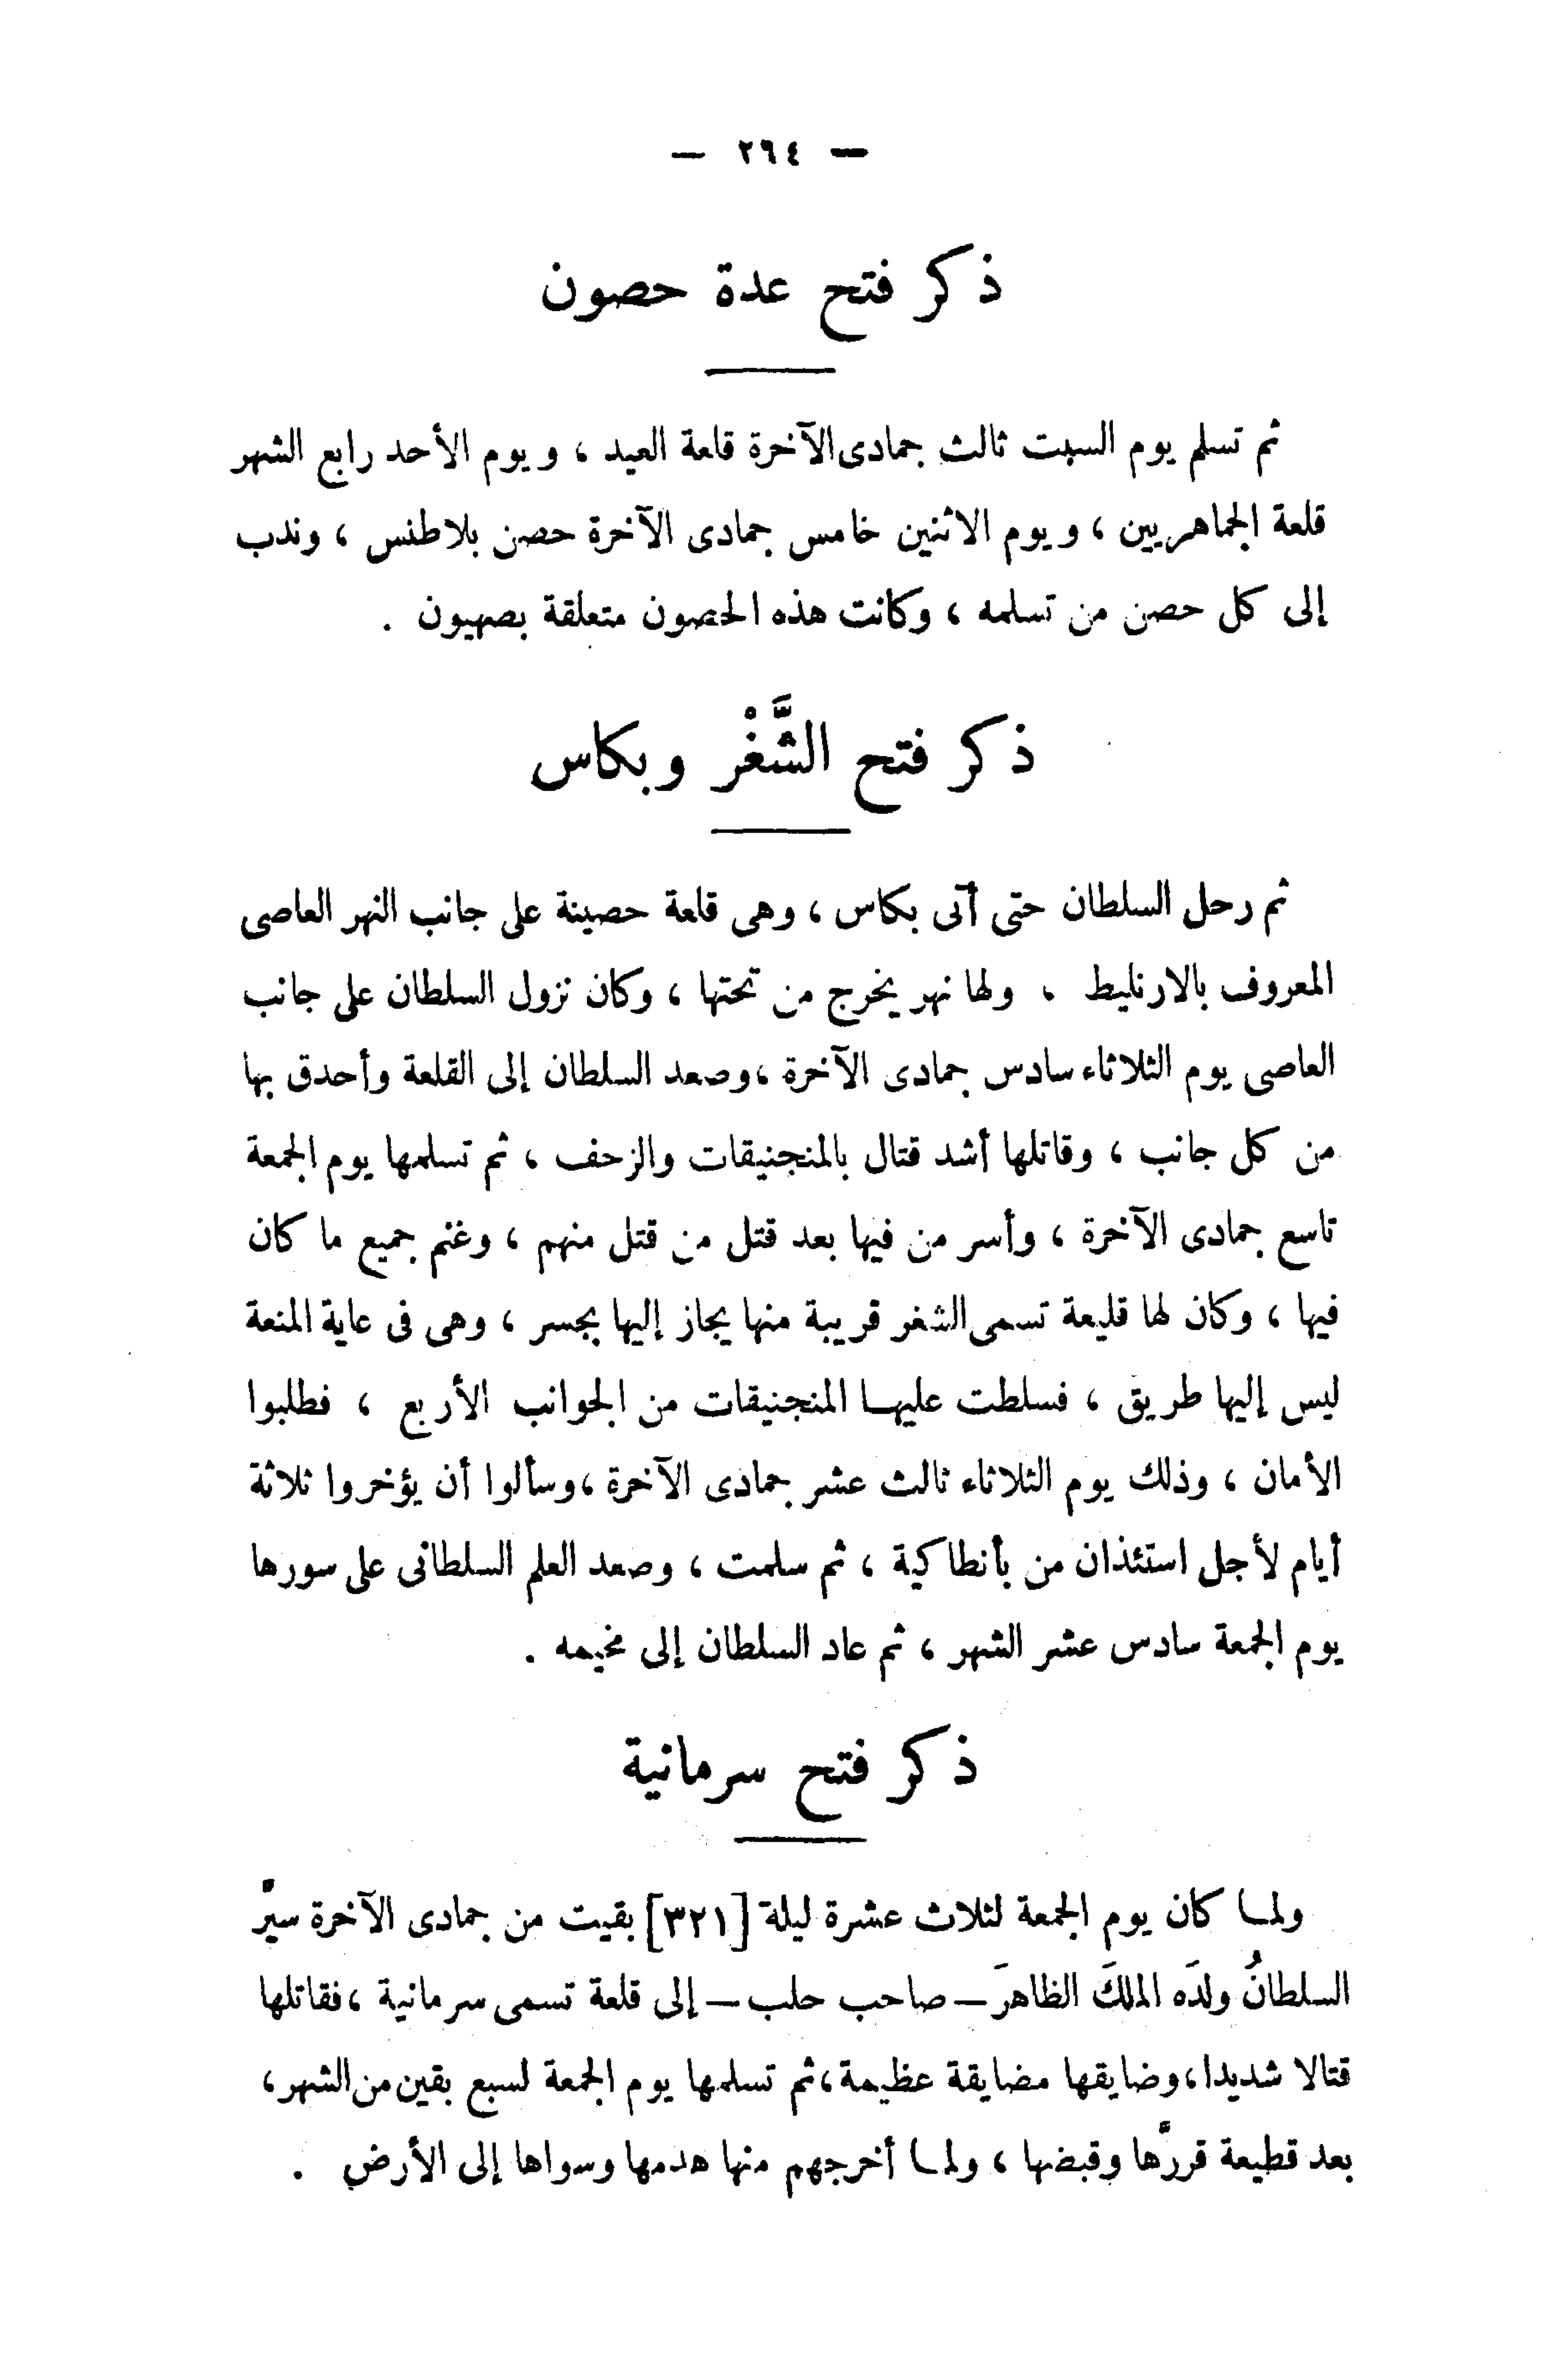 — ٢٦٤ —
ذكر فتح عدة حصون
ثم تسلم يوم السبت ثالث جمادى الآخرة قلعة العيد ، ويوم الأحد رابع الشهر
قلعة الجماهريين ، ويوم الاثنين خامس جمادى الآخرة حصن بلاطنس ، وندب
إلى كل حصن من تسلمه ، وكانت هذه الحصون متعلقة بصهيون .
ذكر فتح الشَّغْر وبكاس
ثم رحل السلطان حتى أتى بكاس ، وهى قلعة حصينة على جانب النهر العاصى
المعروف بالارنليط ، ولها نهر يخرج من تحتها ، وكان نزول السلطان على جانب
العاصى يوم الثلاثاء سادس جمادى الآخرة ، وصعد السلطان إلى القلعة وأحدق بها
من كل جانب ، وقاتلها أشد قتال بالمنجنيقات والزحف ، ثم تسلمها يوم الجمعة
تاسع جمادى الآخرة ، وأسر من فيها بعد قتل من قتل منهم ، وغنم جميع ما كان
فيها ، وكان لها قليعة تسمى الشغر قريبة منها يجاز إليها بجسر ، وهى فى عاية المنعة
ليس إليها طريق ، فسلطت عليها المنجنيقات من الجوانب الأربع ، فطلبوا
الأمان ، وذلك يوم الثلاثاء ثالث عشر جمادى الآخرة ، وسألوا أن يؤخروا ثلاثة
أيام لأجل استئذان من بأنطاكية ، ثم سلمت ، وصعد العلم السلطانى على سورها
يوم الجمعة سادس عشر الشهر ، ثم عاد السلطان إلى مخيمه .
ذكر فتح سرمانية
ولما كان يوم الجمعة لثلاث عشرة ليلة [٣٢١] بقيت من جمادى الآخرة سيَّر
السلطانُ ولدَه الملكَ الظاهرَ — صاحب حلب — إلى قلعة تسمى سرمانية ، فقاتلها
قتالا شديدا ، وضايقها مضايقة عظيمة ، ثم تسلمها يوم الجمعة لسبع بقين من الشهر ،
بعد قطيعة قررَّها وقبضها ، ولما أخرجهم منها هدمها وسواها إلى الأرض .